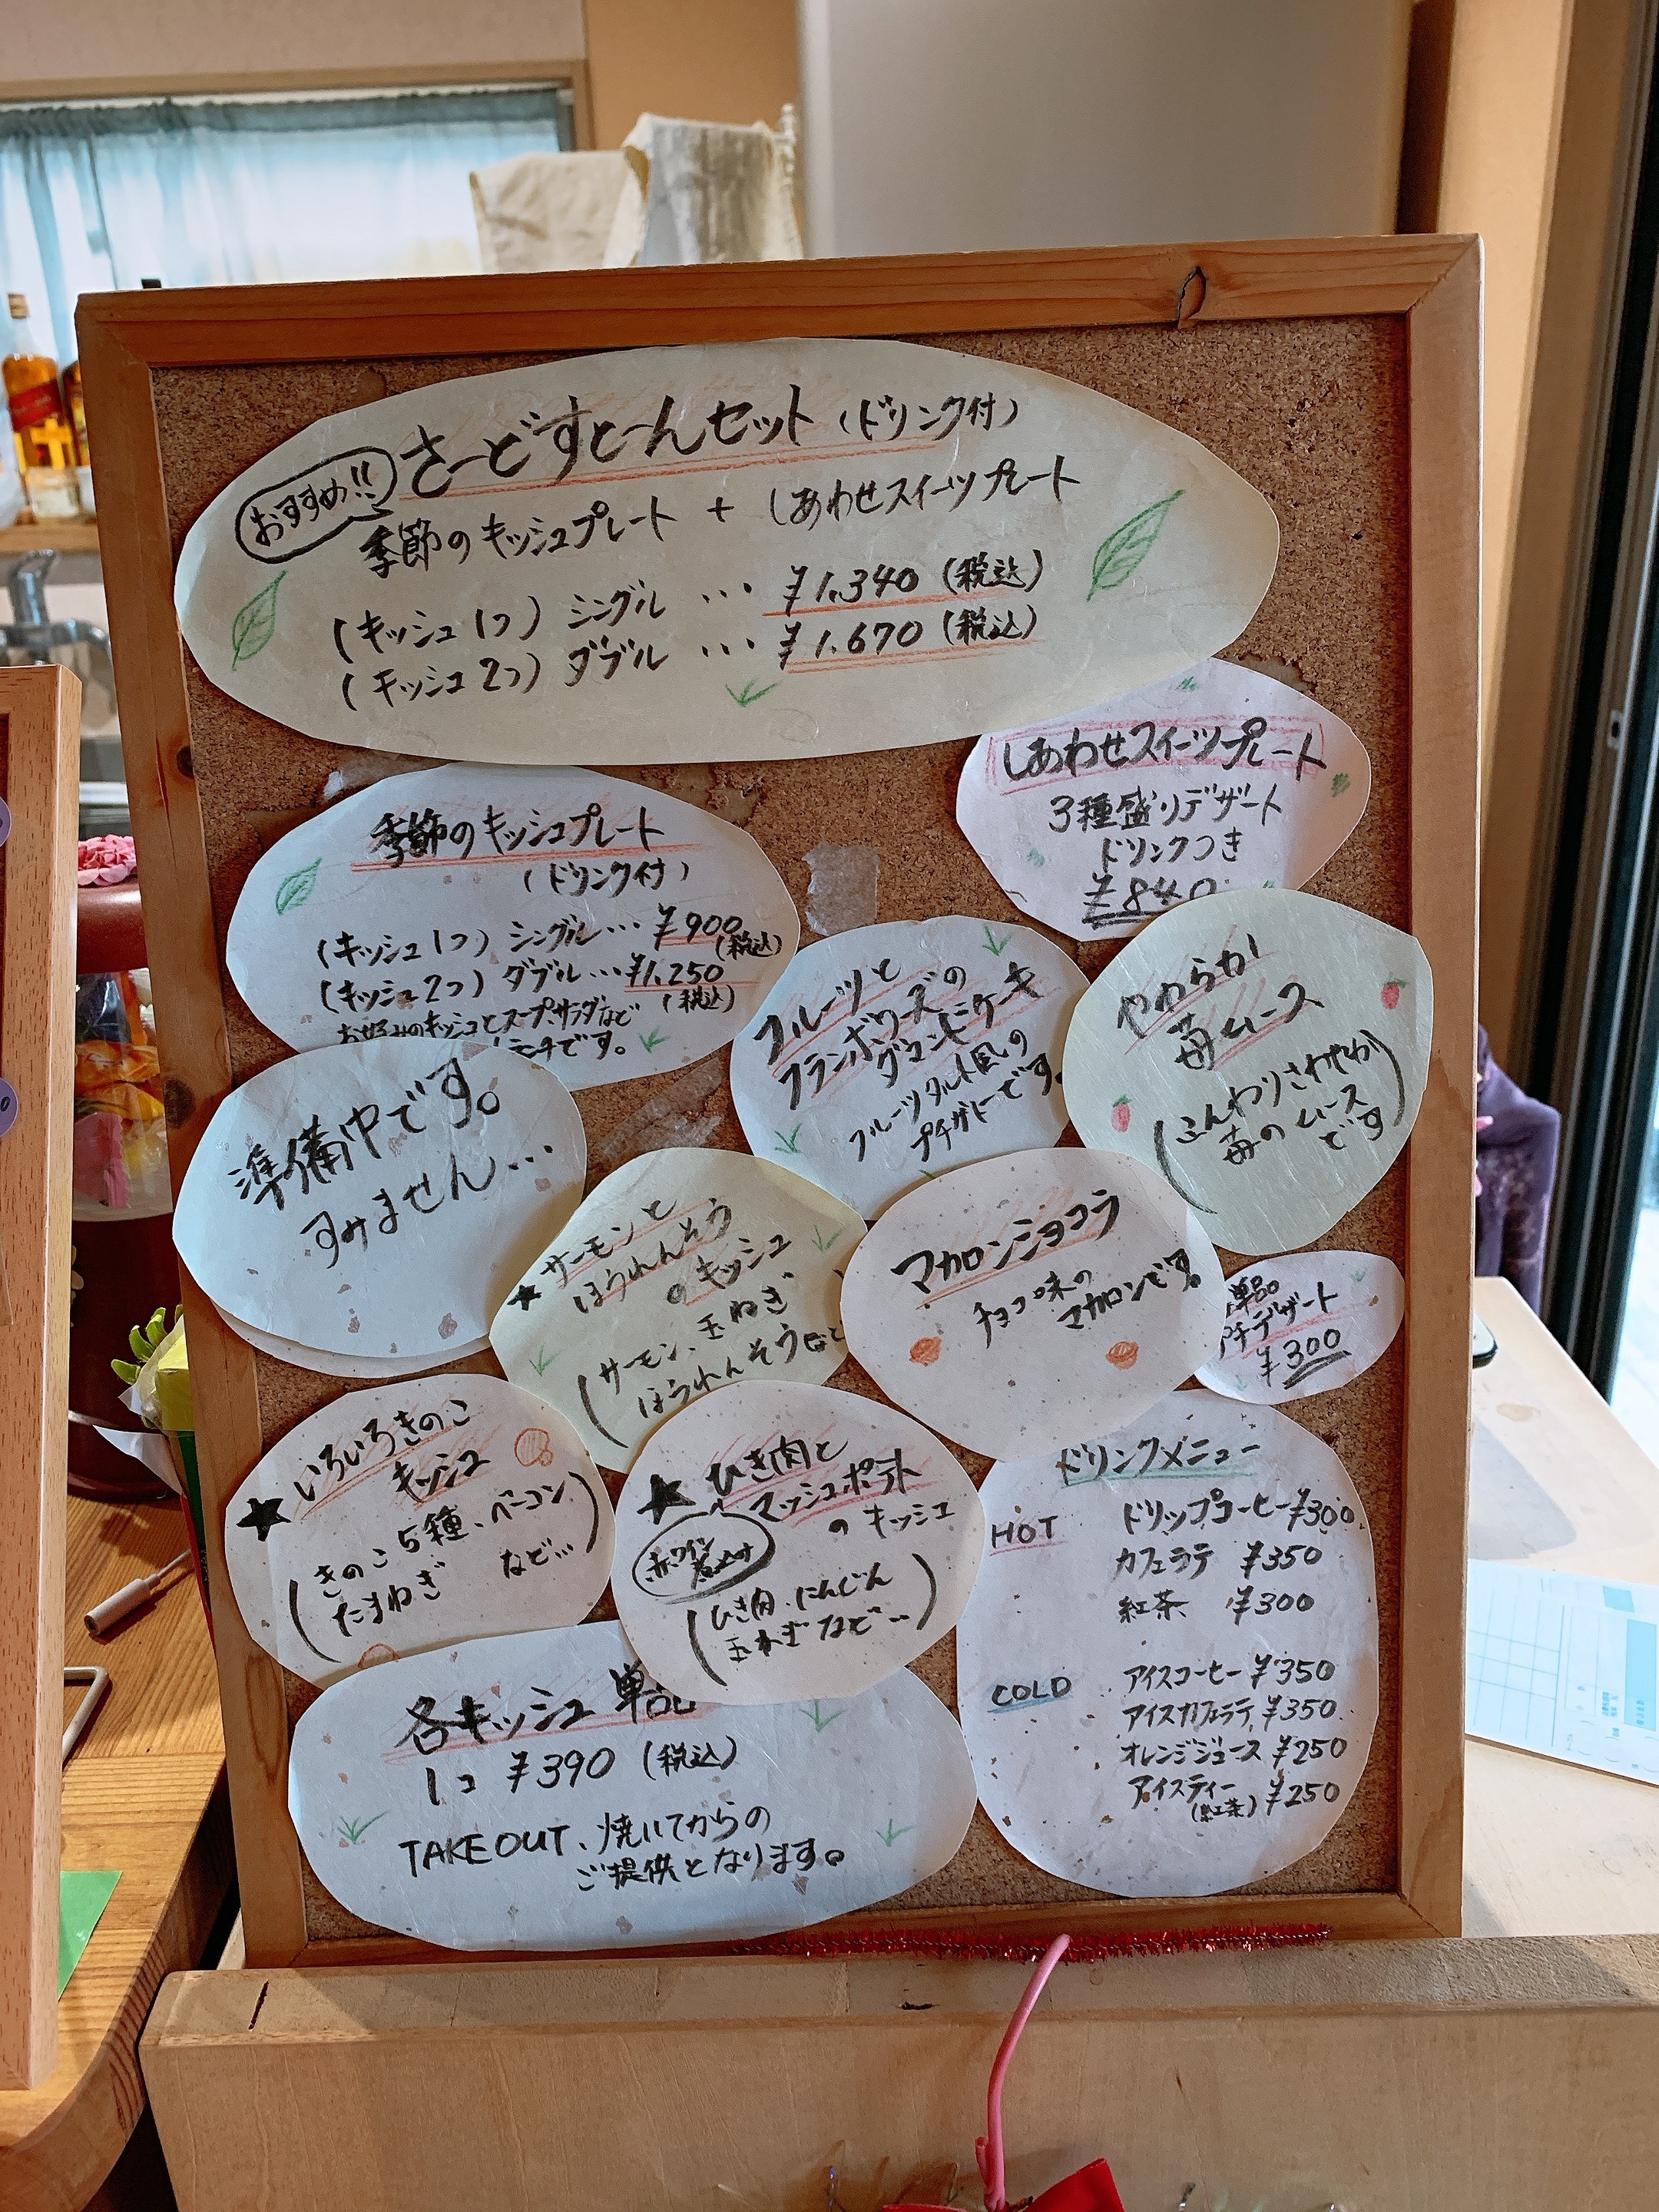 おすすめ!!
さーどすとーんセット(ドリンク付)
季節のキッシュプレート + しあわせスイーツプレート
(キッシュ1つ) シングル … ¥1.340 (税込)
(キッシュ2つ) ダブル … ¥1.670 (税込)
しあわせスイーツプレート
3種盛りデザート
ドリンクつき
¥840
季節のキッシュプレート
(ドリンク付)
(キッシュ1つ) シングル… ¥900
(税込)
(キッシュ2つ) ダブル…¥1.250
(税込)
お好みのキッシュとスープ、サラダなど
ンチです。
フルーツと
フランボワーズの
ダマンドケーキ
フルーツタルト風の
プチガトーです。
やわらか
苺ムース
(ふんわりさわやか
苺のムース
です)
準備中です。
すみません…
★サーモンと
ほうれんそう
のキッシュ
(サーモン、玉ねぎ
ほうれんそうなど
マカロンショコラ
チョコ味の
マカロンです。
単品
プチデザート
¥300
★いろいろきのこ
キッシュ
(きのこ5種、ベーコン
たまねぎ など…)
★ひき肉と
マッシュポテト
のキッシュ
赤ワイン
煮込み
(ひき肉、にんじん
玉ねぎなど…)
ドリンクメニュー
HOT
ドリップコーヒー¥300
カフェラテ ¥350
紅茶 ¥300
COLD
アイスコーヒー ¥350
アイスカフェラテ ¥350
オレンジジュース ¥250
アイスティー
(紅茶) ¥250
各キッシュ 単品
1コ ¥390 (税込)
TAKE OUT、焼いてからの
ご提供となります。